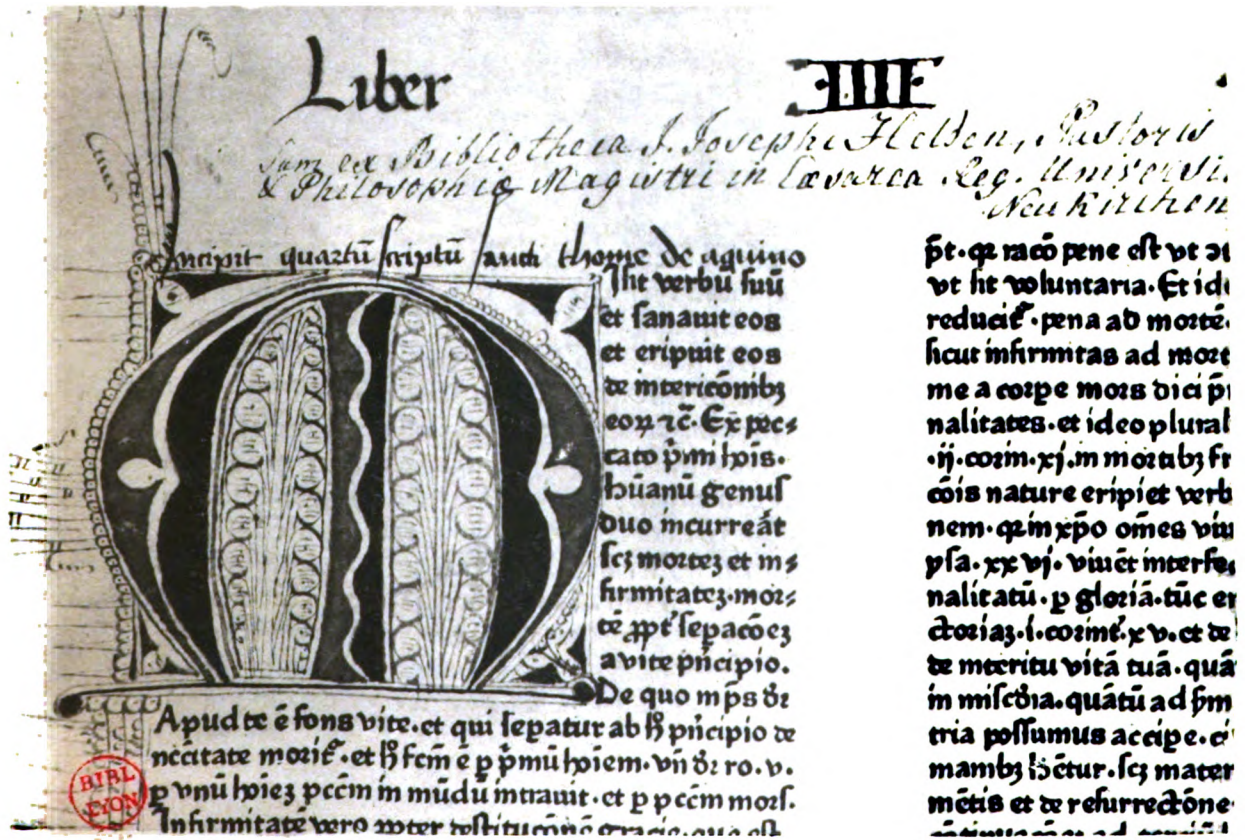 Liber IIII
Sum ex Bibliotheca J. Josephi Helden, Pastoris
& Philosophiæ Magistri in Cæsarea Reg. Universi.
Neukirchen
Incipit quartū scriptū sancti thome de aquino
Misit verbū suū
et sanauit eos
et eripuit eos
de intericōnibꝫ
eoꝝ ⁊c̄. Ex pec⸗
cato p̄mi hōis.
hūanū genus
duo incurreāt
scꝫ morteꝫ et in⸗
firmitateꝫ. mor⸗
tē ꝓpt̾ sepacōeꝫ
a vite p̄ncipio.
De quo in ps dr̄
Apud te ē fons vite. et qui sepatur ab hͦ p̄ncipio de
nccītate morit᷑. et hͦ fcm̄ ē ꝑ p̄mū hoīem. vn̄ dr̄ ro. v.
ꝑ vnū hoīeꝫ pccm̄ in mūdū intrauit. et ꝑ pccm̄ mors.
Infirmitatē vero
p̄t. qꝛ racō pene est vt
vt sit voluntaria. Et id
reducit᷑. pena ad mortē.
sicut infirmitas ad mort
me a corpe mors dici
nalitates. et ideo plural
.ij. corin. xj. in mortibꝫ fr
cōis nature eripiet verb
nem. qꝛ in xp̄o om̄es viu
ysa. xxvj. viuēt interfe
nalitatū. ꝑ gloriā. tūc er
ctoriaꝫ. i. corint̄. xv. et de
de interitu vitā tuā. quā
in misc̄dia. quātū ad p̄m
tria possumus accipe.
manibꝫ hētur. scꝫ mater
mētis et de resurrectōne
BIBL
LYON